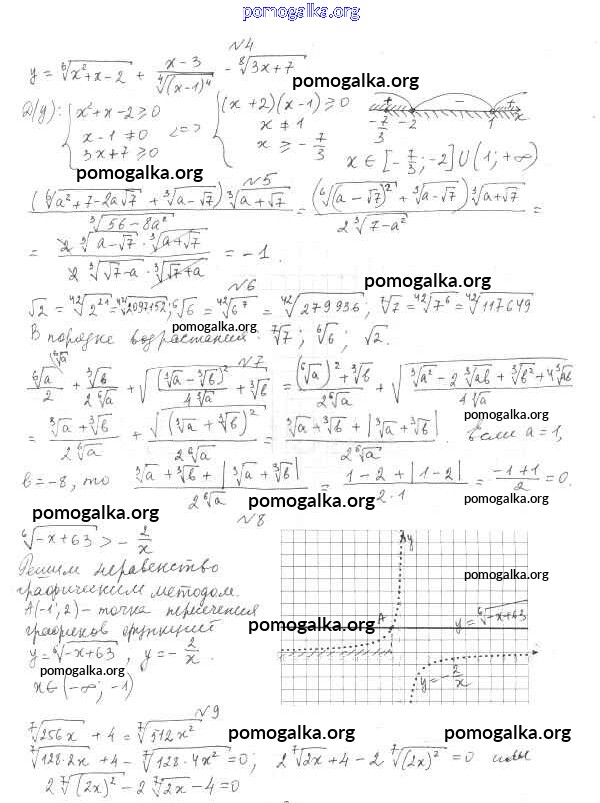 pomogalka.org
№4
y = ⁶√(x²+x-2) + (x-3)/⁴√((x-1)⁴) - ⁸√(3x+7)
pomogalka.org
D(y): { x²+x-2 ≥ 0 <=> { (x+2)(x-1) ≥ 0 + - + -7/3 -2 1 x
x-1 ≠ 0 x ≠ 1
3x+7 ≥ 0 x ≥ -7/3 x ∈ [-7/3; -2] ∪ (1; +∞)
pomogalka.org pomogalka.org
№5
(⁶√(a²+7-2a√7) + ³√(a-√7)) ³√(a+√7) / ³√(56-8a²) = (⁶√((a-√7)²) + ³√(a-√7)) ³√(a+√7) / 2 ³√(7-a²) =
= 2 ³√(a-√7) · ³√(a+√7) / 2 ³√(√7-a) · ³√(√7+a) = -1.
№6 pomogalka.org
√2 = ⁴²√(2²¹) = ⁴²√2097152; ⁶√6 = ⁴²√(6⁷) = ⁴²√279936; ⁷√7 = ⁴²√(7⁶) = ⁴²√117649
pomogalka.org
В порядке возрастания: ⁷√7; ⁶√6; √2.
№7
⁶√a/2 + ³√b/(2 ⁶√a) + √((³√a-³√b)²/(4 ³√a) + ³√b) = ((⁶√a)² + ³√b)/(2 ⁶√a) + √((³√a² - 2 ³√ab + ³√b² + 4 ³√ab)/(4 ³√a))
pomogalka.org pomogalka.org
= (³√a+³√b)/(2 ⁶√a) + √((³√a+³√b)²)/(2 ⁶√a) = (³√a+³√b+|³√a+³√b|)/(2 ⁶√a). Если a=1,
b=-8, то (³√a+³√b+|³√a+³√b|)/(2 ⁶√a) = (1-2+|1-2|)/(2·1) = (-1+1)/2 = 0.
pomogalka.org pomogalka.org pomogalka.org
№8
⁶√(-x+63) > -2/x
Решим неравенство
графическим методом.
A(-1; 2) - точка пересечения
графиков функций
y = ⁶√(-x+63), y = -2/x.
pomogalka.org
x ∈ (-∞; -1)
y
pomogalka.org
A y = ⁶√(-x+63)
pomogalka.org pomogalka.org
y = -2/x
№9
⁷√256x + 4 = ⁷√512x²
pomogalka.org pomogalka.org
⁷√(128·2x) + 4 - ⁷√(128·4x²) = 0; 2 ⁷√2x + 4 - 2 ⁷√((2x)²) = 0 или
2 ⁷√((2x)²) - 2 ⁷√2x - 4 = 0
pomogalka.org pomogalka.org